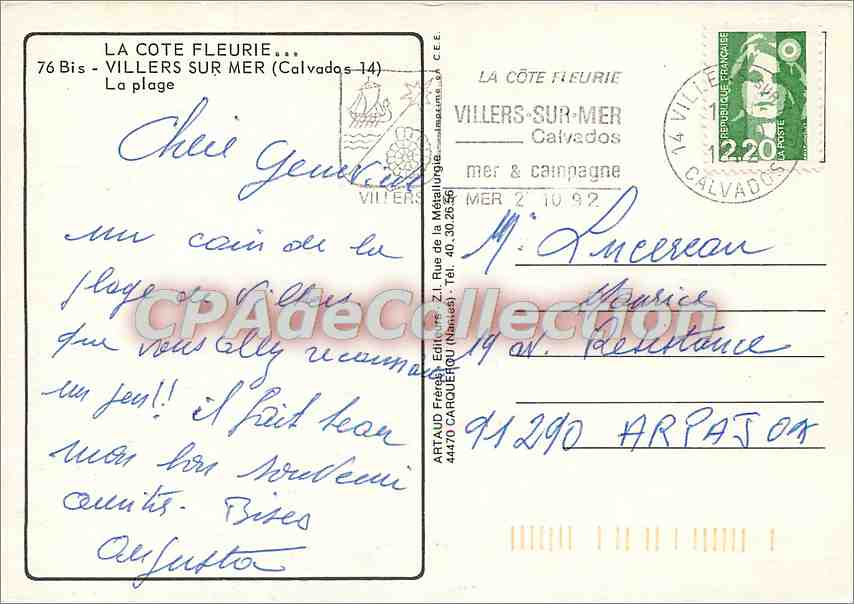 LA COTE FLEURIE...
76 Bis - VILLERS SUR MER (Calvados 14)
La plage
Chère Geneviève
un coin de la
plage de Villers
que vous allez reconnaître
un peu!! il fait beau
mon bon souvenir
amitiés. Bises
Augusta
VILLERS MER 2 10 92
LA CÔTE FLEURIE
VILLERS-SUR-MER
Calvados
mer & campagne
14 VILLERS SUR
CALVADOS
REPUBLIQUE FRANÇAISE
2,20
LA POSTE
ARTAUD Frères, Editeurs - Z.I. Rue de la Métallurgie Imprimé en C.E.E.
44470 CARQUEFOU (Nantes) - Tél. 40.30.26.56
Mr Lucereau
Maurice
19 av. Résistance
91290 ARPAJON
CPAdeCollection